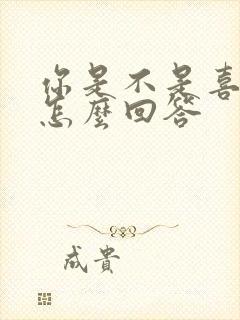 你是不是喜
怎麼回答
成貴